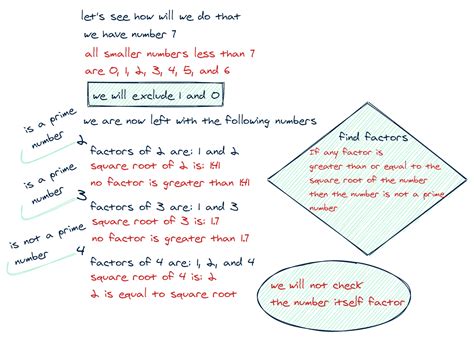 let's see how will we do that
we have number 7
all smaller numbers less than 7
are 0, 1, 2, 3, 4, 5, and 6
we will exclude 1 and 0
we are now left with the following numbers
is a prime
number
2
factors of 2 are: 1 and 2
square root of 2 is: 1.41
no factor is greater than 1.41
is a prime
number
3
factors of 3 are: 1 and 3
square root of 3 is: 1.7
no factor is greater than 1.7
is not a prime
number
4
factors of 4 are: 1, 2, and 4
square root of 4 is: 2
2 is equal to square root
find factors
If any factor is
greater than or equal to the
square root of the number
then the number is not a prime
number
we will not check
the number itself factor